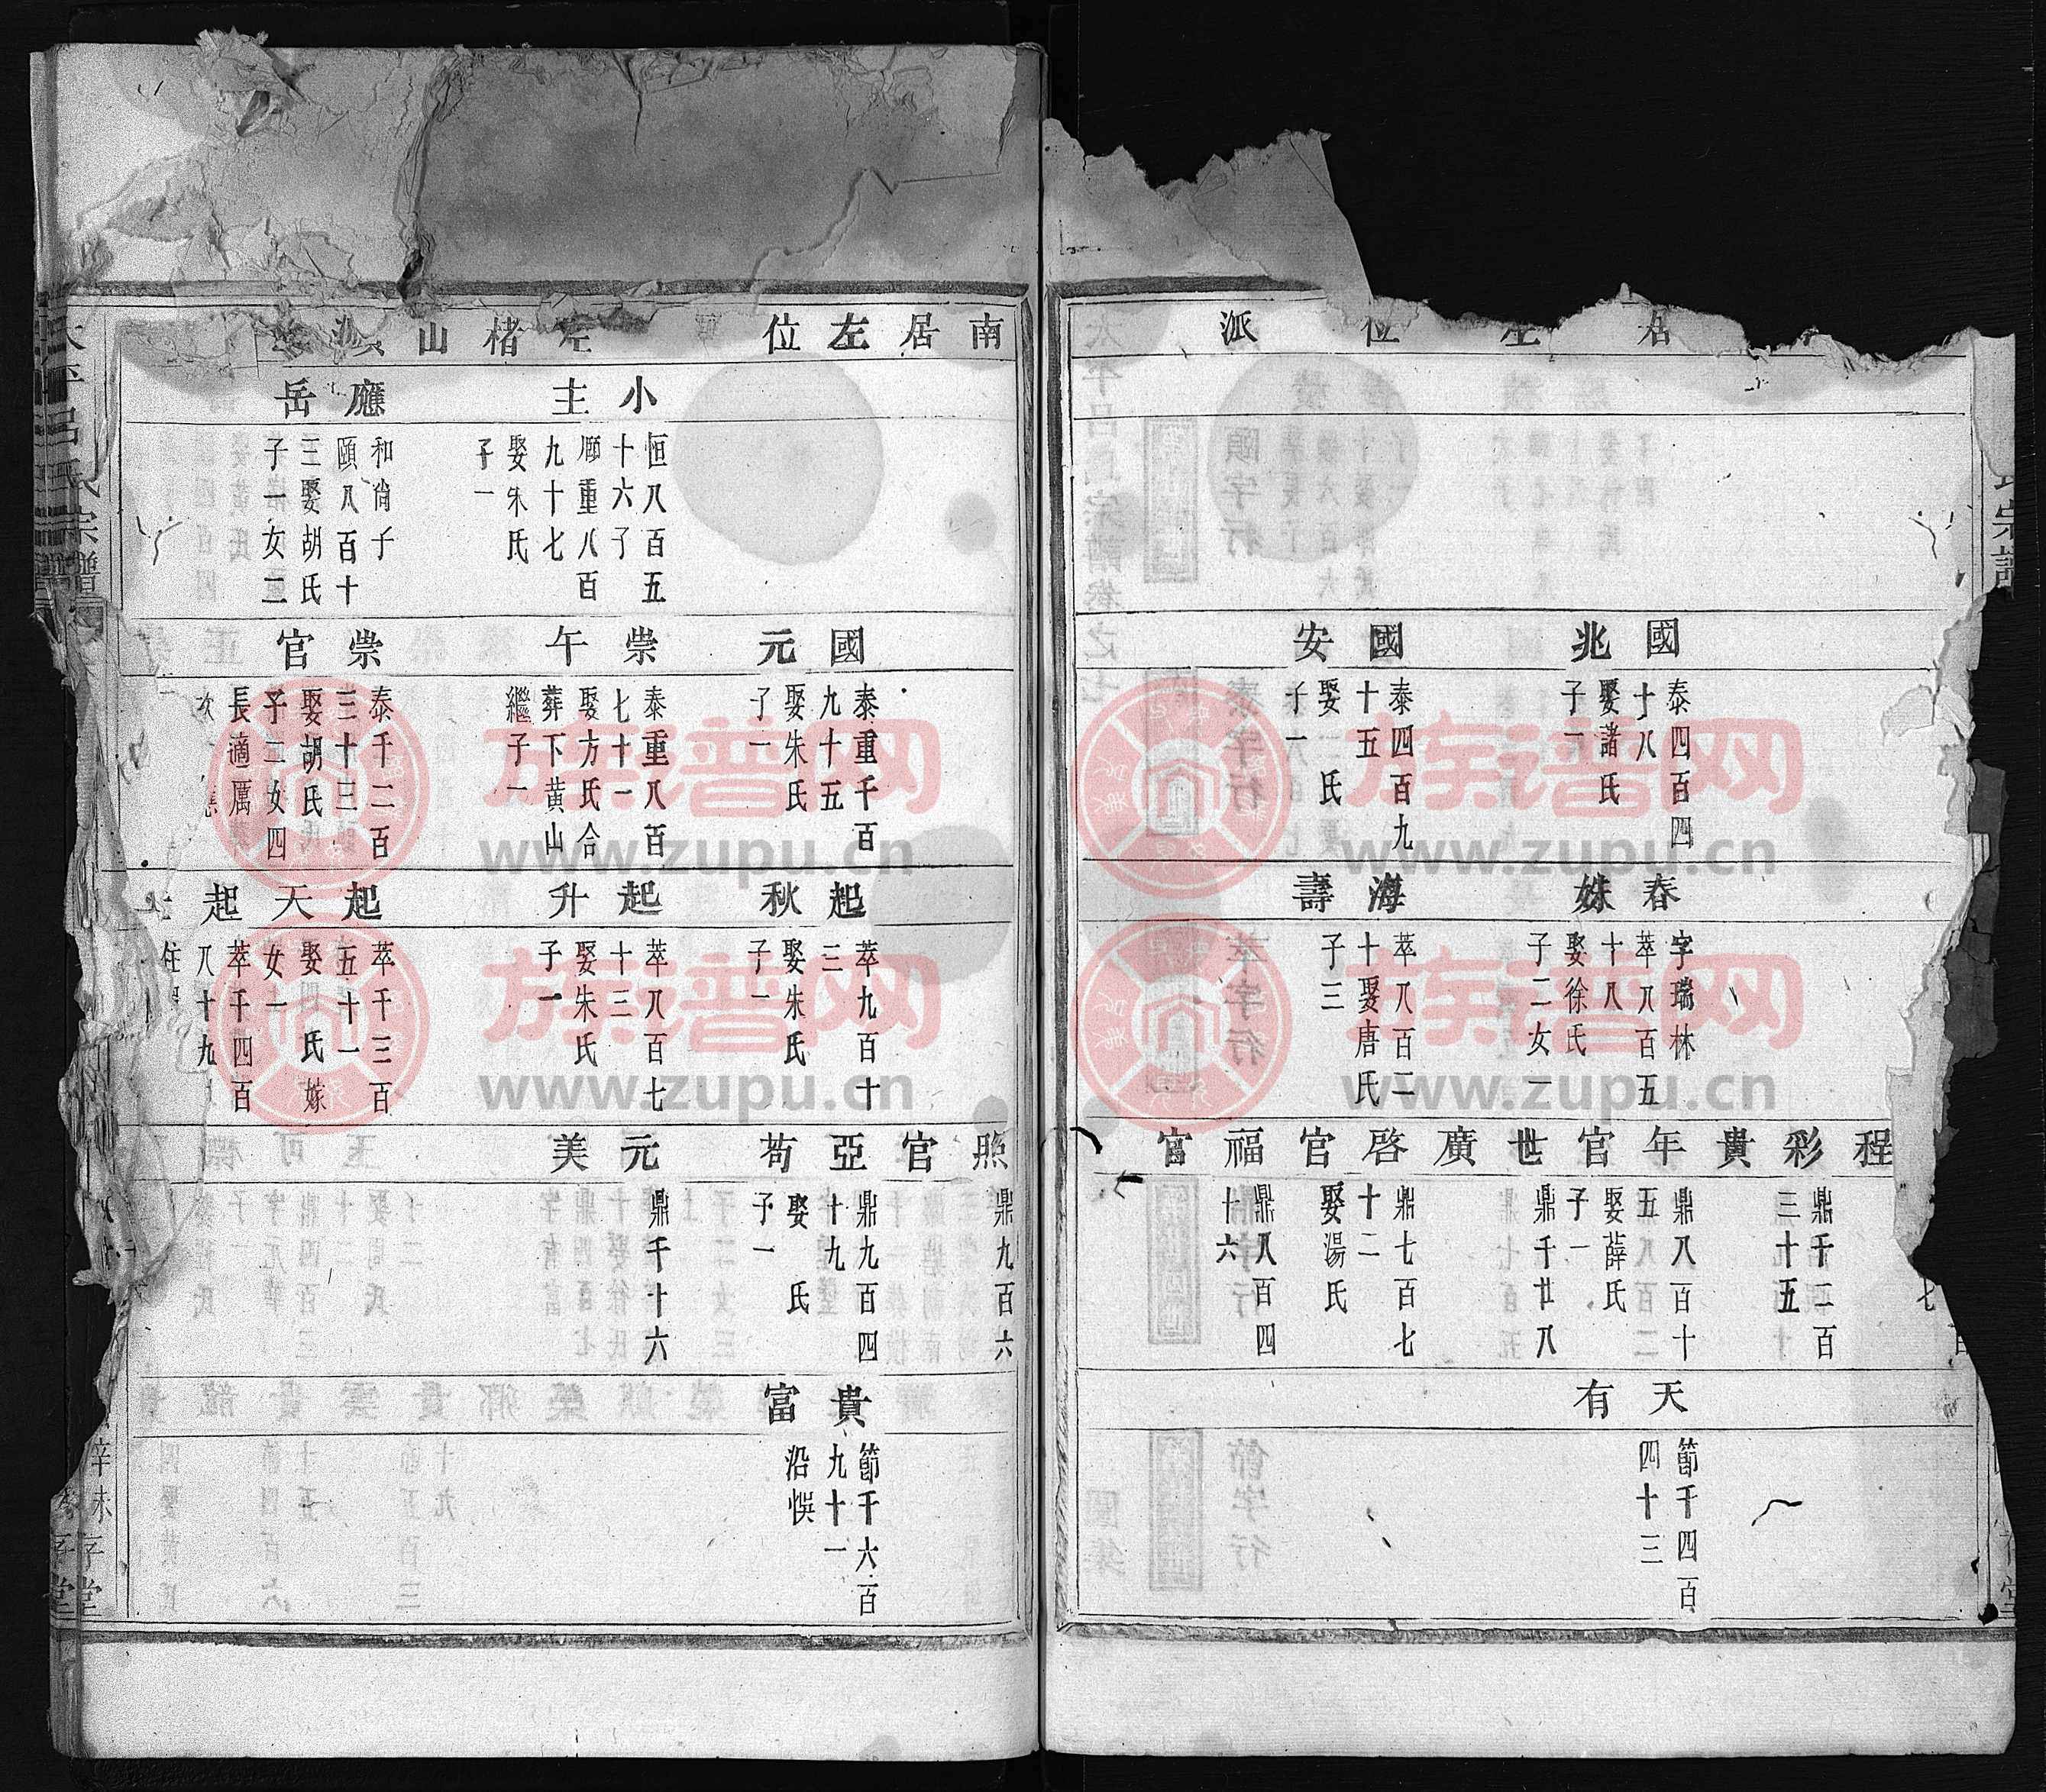 居左位派
國兆
泰四百四
十八
娶諸氏
子一
國安
泰四百九
十五
娶 氏
子一
春姝
字瑞林
萃八百五
十八
娶徐氏
子二女一
海壽
萃八百二
十娶唐氏
子三
程彩
貴年
官世
廣啓
官福
官
鼎千二百
三十五
鼎八百十
五
娶薛氏
子一
鼎千廿八
鼎七百七
十二
娶湯氏
鼎八百四
十六
天有
節千四百
四十三
南居左位
小主
恒八百五
十六子
頤重八百
九十七
娶朱氏
子一
應岳
和尚子
頤八百十
三娶胡氏
子一女二
國元
泰重千百
九十五
娶朱氏
子一
崇午
泰重八百
七十一
娶方氏合
葬下黃山
繼子一
崇官
泰千二百
三十三
娶胡氏
子二女四
長適厲
次
起秋
萃九百十
三
娶朱氏
子一
起升
萃八百七
十三
娶朱氏
子一
起天
起
萃千三百
五十一
娶 氏 嫁
女一
萃千四百
八十九
熙官
亞苟
元美
鼎九百六
鼎九百四
十九
娶 氏
子一
鼎千十六
貴富
節千六百
九十一
沿悞
太平呂氏宗譜
辛未
www.zupu.cn
族谱网
www.zupu.cn
族谱网
www.zupu.cn
族谱网
www.zupu.cn
族谱网